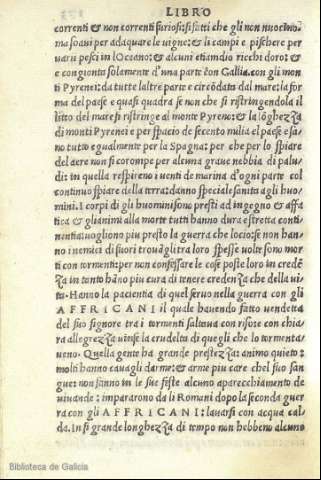 LIBRO
correnti & non correnti furiosi: sì fatti che gli non nuocino.
ma soavi per adaquare le vigne: & li campi e pischere per
varii pesci in l'Oceano: & alcuni etiamdio ricchi doro: &
e congionta solamente d'una parte con Gallia. con gli mon
ti Pyrenei: da tutte laltre parte e circõdata dal mare: la for
ma del paese e quasi quadra se non che si ristringendola il
litto del mare si ristringe al monte Pyreno: & la lõghezza
di monti Pyrenei e per spacio de secento milia el paese e sa-
no tutto egualmente per la Spagna: per che per lo spirare
del aere non si corompe per alcuna grave nebbia di palu-
di: in quella respireno i venti de marina d'ogni parte col
continuo spirare della terra: danno speciale sanita agli huo
mini. I corpi di gli huomini sono presti ad ingegno & affa
tica & gli animi alla morte tutti hanno dura e stretta conti
nentia: vogliono piu presto la guerra che locio: se non han-
no inemici di fuori trovãgli tra loro spesse volte sono mor
ti con tormenti: per non confessare le cose poste loro in credẽ
za in tanto hãno piu cura di tenere credenza che della vi
ta. Hanno la pacientia di quel servo nella guerra con gli
AFFRICANI il quale havendo fatto vendetta
del suo signore tra i tormenti saltava con risuse con chia
ra allegrezza vinse la crudelta di quegli che lo tormenta
veno. Quella gente ha grande prestezza: animo quieto:
molti hanno cavagli darme: & arme piu care chel suo san
gue: non fanno in le sue feste alcuno aparecchiamento de
vivande: impararono da li Romani dapo la seconda guer
ra con gli AFFRICANI: lavarsi con acqua cal
da. In si grande longhezza di tempo non hebbeno alcuno
Biblioteca de Galicia